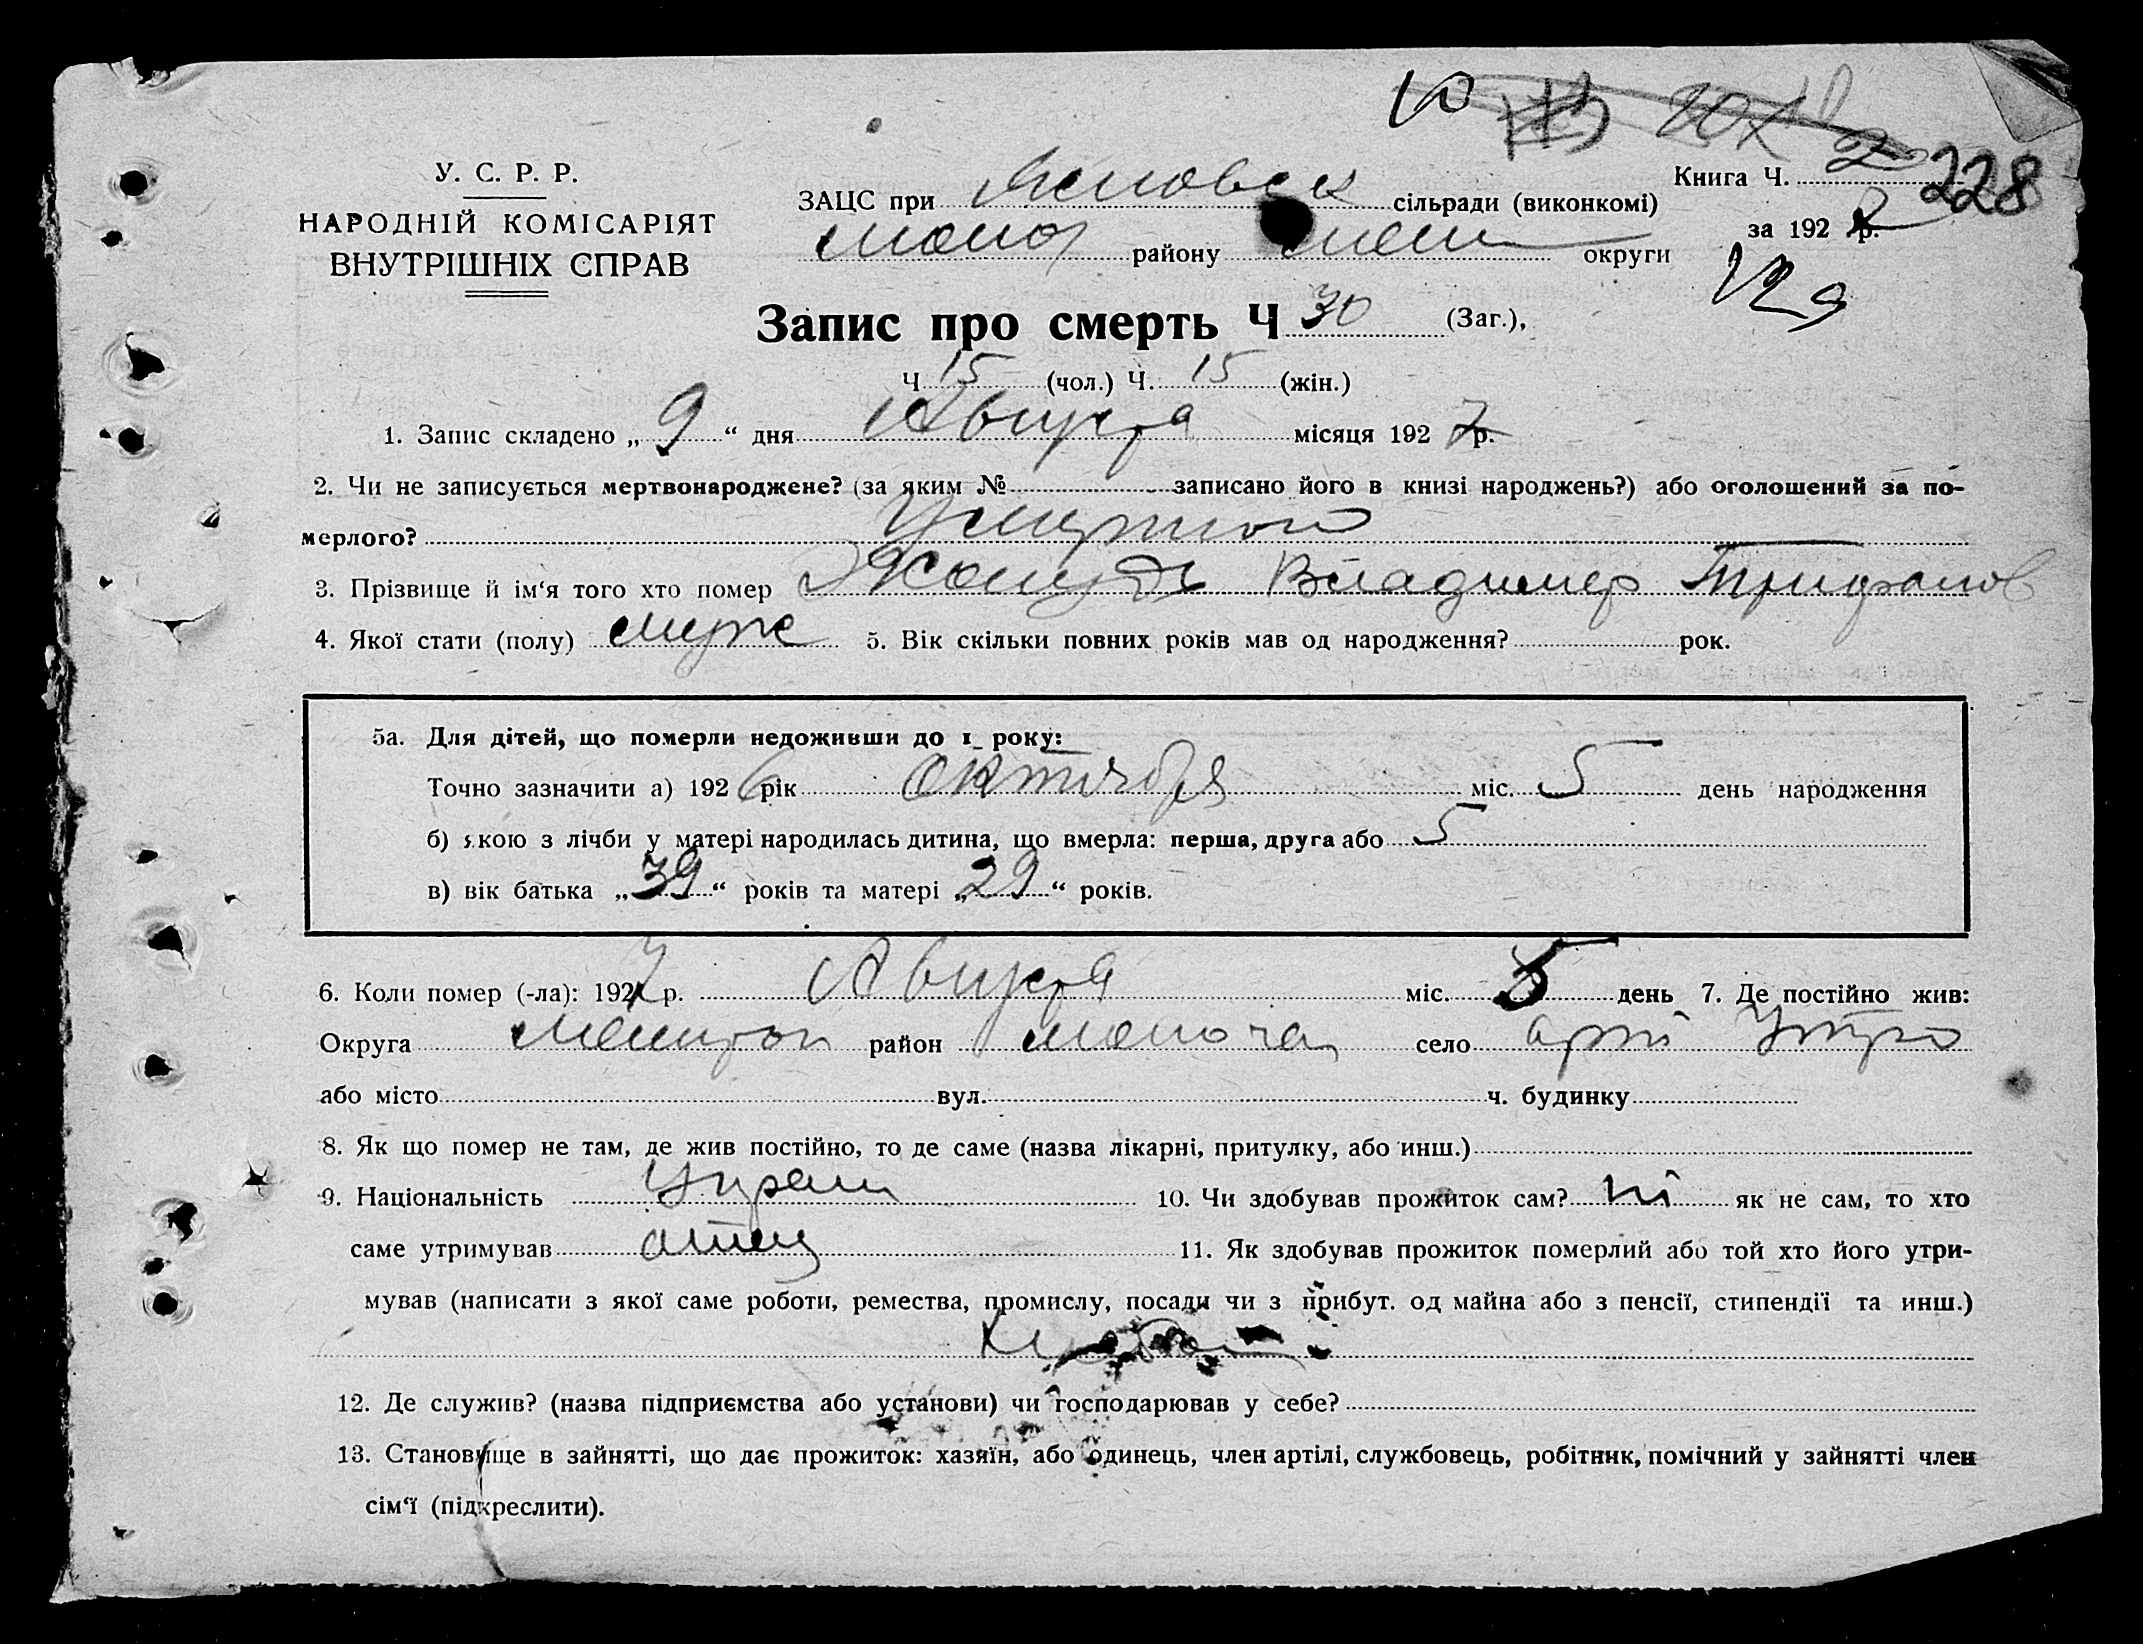 228
У. С. Р. Р.
НАРОДНІЙ КОМІСАРІЯТ
ВНУТРІШНІХ СПРАВ
Книга Ч. 2
ЗАЦС при сільради (виконкомі)
за 192 р.
району мел округи
129
Запис про смерть Ч 30 (Заг.),
Ч 15 (чол.) Ч. 15 (жін.)
1. Запис складено „ 9 “ дня Августа місяця 192 7 р.
2. Чи не записується мертвонароджене? (за яким № записано його в книзі народжень?) або оголошений за по-
мерлого?
3. Прізвище й ім‘я того хто помер Владимер Трифонов
4. Якої стати (полу) муж 5. Вік скільки повних років мав од народження? рок.
5а. Для дітей, що померли недоживши до 1 року:
Точно зазначити а) 192 6 рік Октября міс. 5 день народження
б) якою з лічби у матері народилась дитина, що вмерла: перша, друга або 5
в) вік батька „ 39 “ років та матері „ 29 “ років.
6. Коли помер (-ла): 192 7 р. Августа міс. 5 день 7. Де постійно жив:
Округа Мелитоп район село арт Утро
або місто вул. ч. будинку
8. Як що помер не там, де жив постійно, то де саме (назва лікарні, притулку, або инш.)
9. Національність Украин 10. Чи здобував прожиток сам? ні як не сам, то хто
саме утримував отец 11. Як здобував прожиток померлий або той хто його утри-
мував (написати з якої саме роботи, ремества, промислу, посади чи з прибут. од майна або з пенсії, стипендії та инш.)
12. Де служив? (назва підприємства або установи) чи господарював у себе?
13. Становище в зайнятті, що дає прожиток: хазяїн, або одинець, член артілі, службовець, робітник, помічний у зайнятті член
сім‘ї (підкреслити).